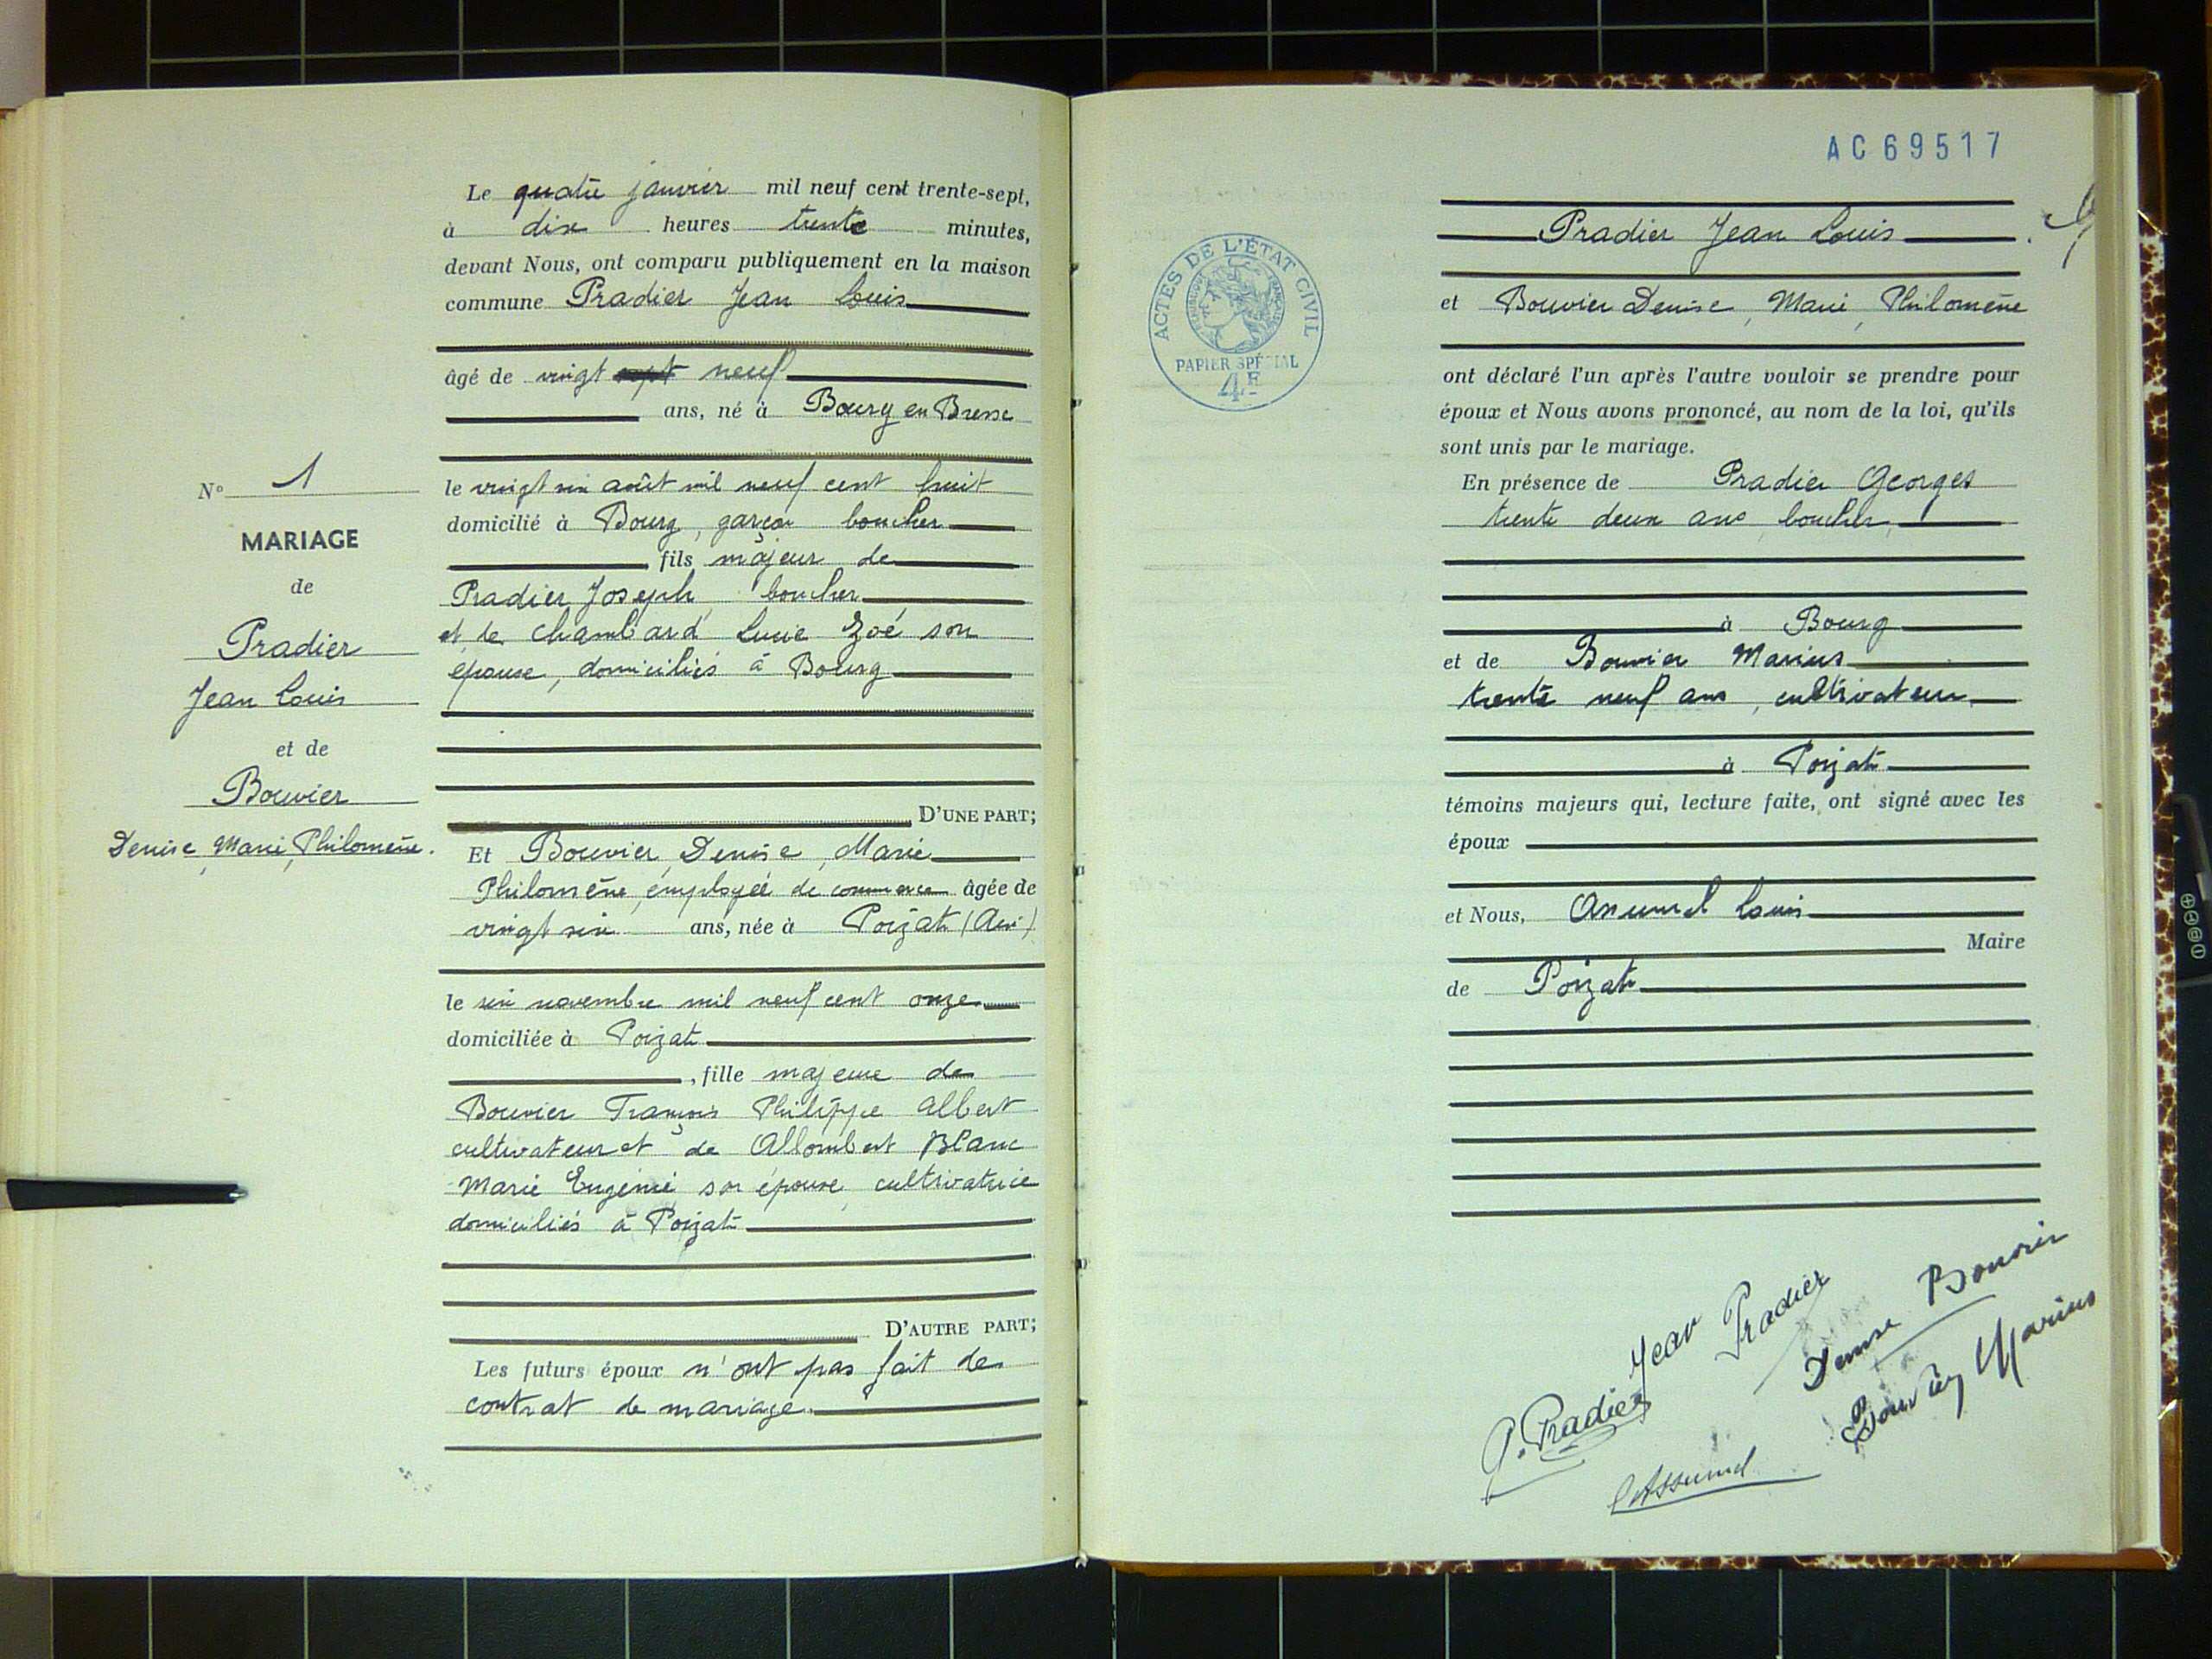 Le quatre janvier mil neuf cent trente-sept,
à dix heures trente minutes,
devant Nous, ont comparu publiquement en la maison
commune Pradier Jean Louis
âgé de vingt sept neuf
ans, né à Bourg en Bresse
le vingt six août mil neuf cent huit
domicilié à Bourg, garçon boucher
fils majeur de
Pradier Joseph boucher
et de Chambard Lucie Zoé son
épouse, domiciliés à Bourg
D'UNE PART;
N° 1
MARIAGE
de
Pradier
Jean Louis
et de
Bouvier
Denise, Marie, Philomène.
Et Bouvier, Denise, Marie
Philomène, employée de commerce âgée de
vingt six ans, née à Poizat (Ain)
le six novembre mil neuf cent onze
domiciliée à Poizat
, fille majeure de
Bouvier François Philippe Albert
cultivateur et de Allombert Blanc
Marie Eugénie son épouse, cultivatrice
domiciliés à Poizat
D'AUTRE PART;
Les futurs époux n'ont pas fait de
contrat de mariage.
AC69517
ACTES DE L'ÉTAT CIVIL
PAPIER SPÉCIAL
4F
Pradier Jean Louis
et Bouvier Denise, Marie, Philomène
ont déclaré l'un après l'autre vouloir se prendre pour
époux et Nous avons prononcé, au nom de la loi, qu'ils
sont unis par le mariage.
En présence de Pradier Georges
trente deux ans, boucher,
à Bourg
et de Bouvier Marius
trente neuf ans, cultivateur
à Poizat
témoins majeurs qui, lecture faite, ont signé avec les
époux
et Nous, Assumel Louis
Maire
de Poizat
Jean Pradier
Denise Bouvier
G. Pradier
Bouvier Marius
L Assumel